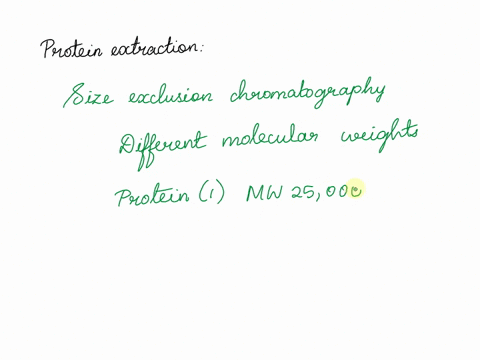 Protein extraction:
Size exclusion chromatography
Different molecular weights
Protein (1) MW 25,000